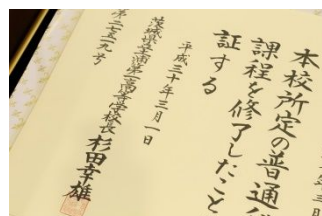 本校所定の普通
課程を修了したこと
証する
平成三十年三月一日
茨城県立土浦第一高等学校長
杉田幸雄
第二七五一九号